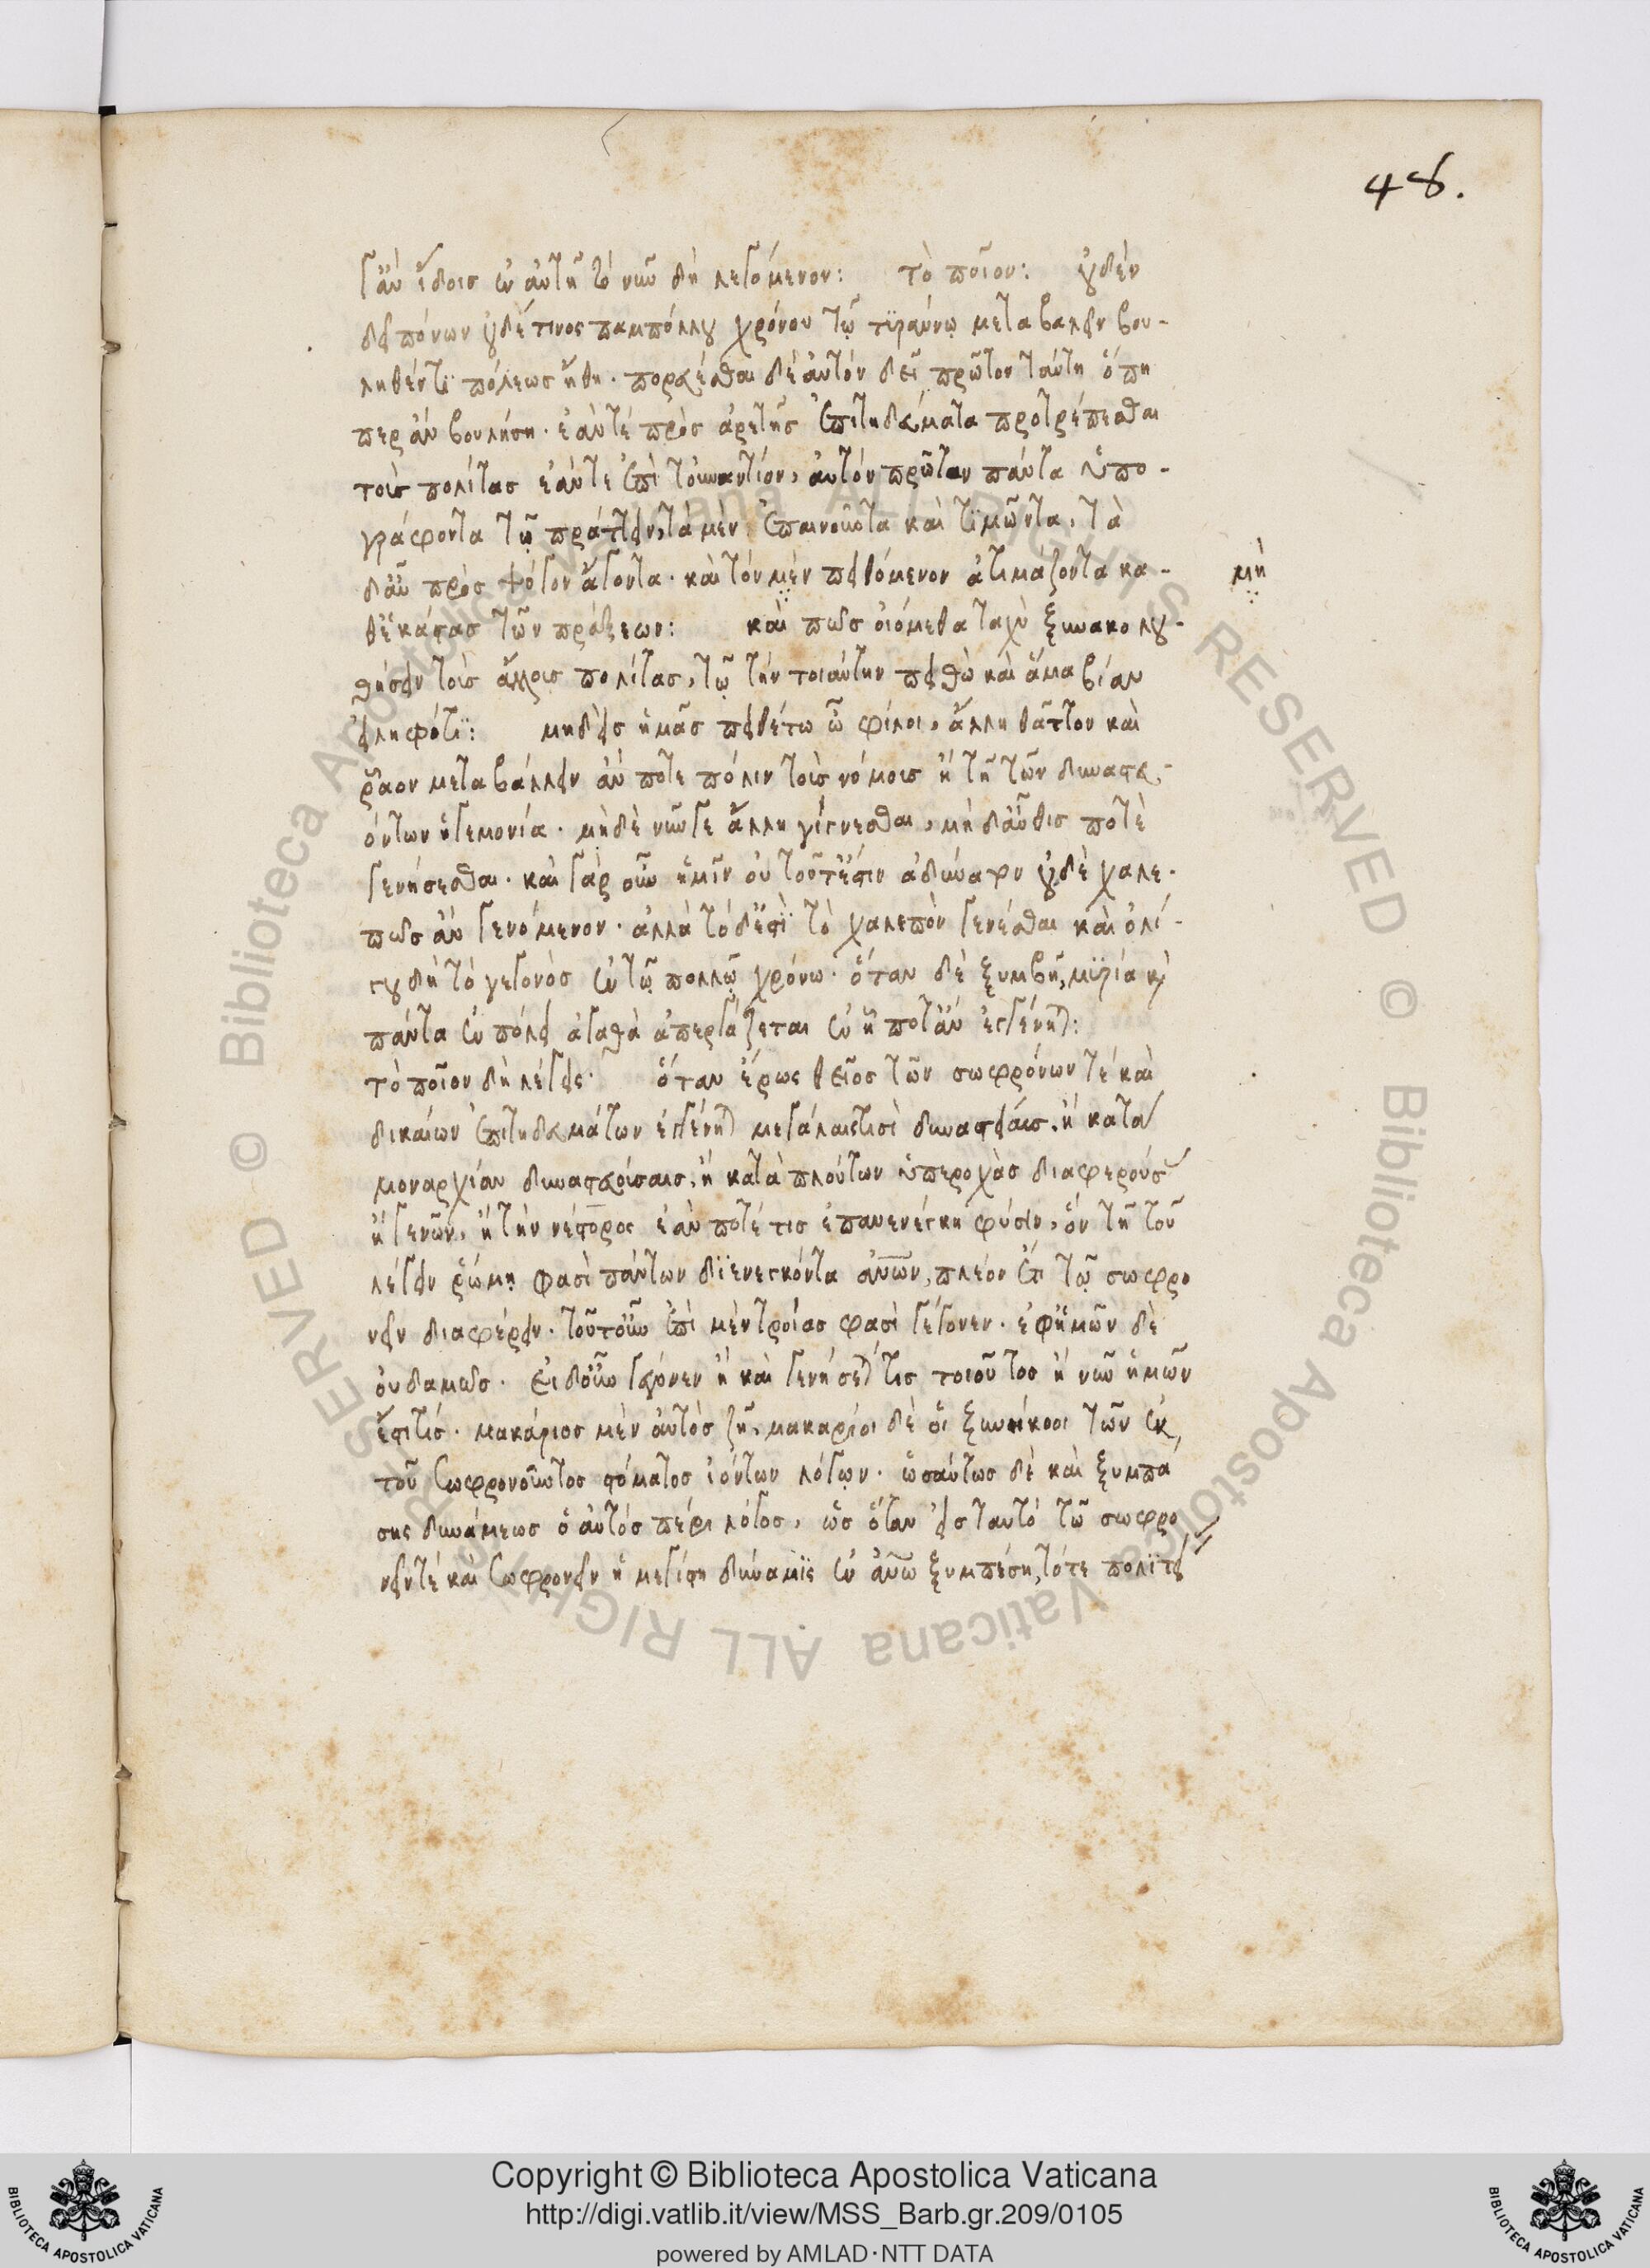 48.
γ' ἂν ἴδοις ἐν αὐτῇ τὸ νῦν δὴ λεγόμενον: τὸ ποῖον: οὐδὲν
δεῖ πόνων οὐδέ τινος παμπόλλου χρόνου τῷ τϊράννῳ μεταβαλεῖν βου-
ληθέντϊ πόλεως ἤθη. πορεύεσθαι δὲ αὐτόν δεῖ πρῶτον ταύτῃ ὅπη
περ ἂν βουλήσῃ. ἐάν τε πρὸς ἀρετῆς ἐπιτηδεύματα προτρέπεσθαι
τοὺς πολίτας ἐάν τε ἐπὶ τοὐναντίον, αὐτόν πρῶτον πάντα ὑπο-
γράφοντα τῷ πράττειν, τὰ μὲν ἐπαινοῦντα καὶ τϊμῶντα, τὰ
δ' αὖ πρὸς ψόγον ἄγοντα. καὶ τόν μὲν πειθόμενον ἀτιμάζοντα κα-
μὴ
θ' ἑκάστας τῶν πράξεων: καὶ πῶς οἰόμεθα ταχὺ ξυνακολου-
θήσειν τοὺς ἄλλους πολίτας, τῷ τὴν τοιαύτην πειθὼ καὶ ἅμα βίαν
εἰληφότϊ: μηδεὶς ἡμᾶς πειθέτω ὦ φίλοι, ἄλλη θᾶττον καὶ
ῥᾷον μεταβάλλειν ἄν ποτε πόλιν τοὺς νόμους ἢ τῇ τῶν δυναστευ-
όντων ἡγεμονία. μηδὲ νῦν γε ἄλλη γίγνεσθαι, μὴ δ' αὖθις ποτὲ
γενήσεσθαι. καὶ γὰρ οὖν ἡμῖν οὐ τοῦτ' ἔστιν ἀδύνατον οὐδὲ χαλε-
πῶς ἂν γενόμενον. ἀλλὰ τόδ' ἔστϊ τὸ χαλεπὸν γενέσθαι καὶ ὀλί-
γου δὴ τὸ γεγονὸς ἐν τῷ πολλῷ χρόνω. ὅταν δὲ ξυμβῇ, μϋρία καὶ
πάντα ἐν πόλει ἀγαθὰ ἀπεργάζεται ἐν ᾗ ποτ' ἂν ἐγγένηται:
τὸ ποῖον δὴ λέγεις. ὅταν ἔρως θεῖος τῶν σωφρόνων τέ καὶ
δικαίων ἐπιτηδευμάτων ἐγγένηται μεγάλαις τισὶ δυναστείαις. ἢ κατὰ
μοναρχίαν δυναστευούσαις, ἢ κατὰ πλούτων ὑπεροχὰς διαφερούσαις
ἢ γενῶν, ἢ τὴν νέστορος ἐάν ποτέ τις ἐπανενέγκη φύσιν, ὅν τῇ τοῦ
λέγειν ῥώμῃ φασὶ πάντων διενεγκόντα ἀνθρώπων, πλέον ἔτι τῷ σωφρο
νεῖν διαφέρειν. τοῦτ' οὖν ἐπὶ μὲν τροίας φασὶ γέγονεν. ἐφ' ἡμῶν δὲ
οὐδαμῶς. εἰ δ' οὖν γέγονεν ἢ καὶ γενήσεταί τις τοιοῦτος ἢ νῦν ἡμῶν
ἔστι τίς. μακάριος μὲν αὐτὸς ζῇ, μακαρίοι δὲ οἱ ξυνήκοοι τῶν ἐκ
τοῦ σωφρονοῦντος στόματος ἰόντων λόγων. ὡσαύτως δὲ καὶ ξυμπά
σης δυνάμεως ὁ αὐτός πέρι λόγος, ὡς ὅταν εἰς ταυτό τῷ φρο
νεῖν τέ καὶ σωφρονεῖν ἡ μεγίστη δύναμϊς ἐν ἀνθρώπω ξυμπέση, τότε πολϊτεί
Copyright © Biblioteca Apostolica Vaticana
http://digi.vatlib.it/view/MSS_Barb.gr.209/0105
powered by AMLAD·NTT DATA
BIBLIOTECA APOSTOLICA VATICANA
BIBLIOTECA APOSTOLICA VATICANA
© Biblioteca Apostolica Vaticana ALL RIGHTS RESERVED © Biblioteca Apostolica Vaticana ALL RIGHTS RESERVED